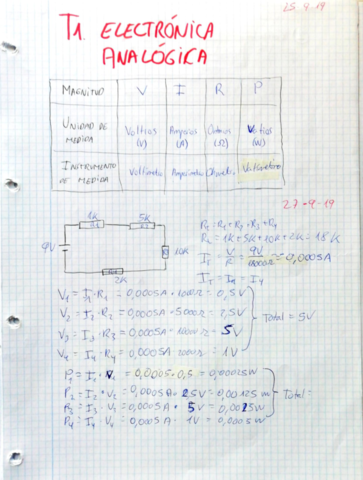 25-9-19
T1. ELECTRÓNICA
ANALÓGICA
MAGNITUD V I R P
UNIDAD DE MEDIDA Voltios (V) Amperios (A) Ohmios (Ω) Vatios (W)
INSTRUMENTO DE MEDIDA Voltímetro Amperímetro Óhmetro
27-9-19
1K 5K
9V 10K
2K
R1 + R2 + R3 + R4
1K + 5K + 10K + 2K = 18K
I = V/R = 9V = 0,0005A
V1 = I1 · R1 = 0,0005A · 1000Ω = 0,5V
V2 = I2 · R2 = 0,0005A · 5000Ω = 2,5V
V3 = I3 · R3 = 0,0005A · 10000Ω = 5V
V4 = I4 · R4 = 0,0005A 2000Ω = 1V
Total = 5V
P1 = 0,0005 · 0,5 = 0,00025W
P2 = I2 · V2 = 0,0005A · 2,5V = 0,00125W
P3 = I3 · V3 = 0,0005A · 5V = 0,0025W
P4 = I4 · V4 = 0,0005A · 1V = 0,0005W
Total =